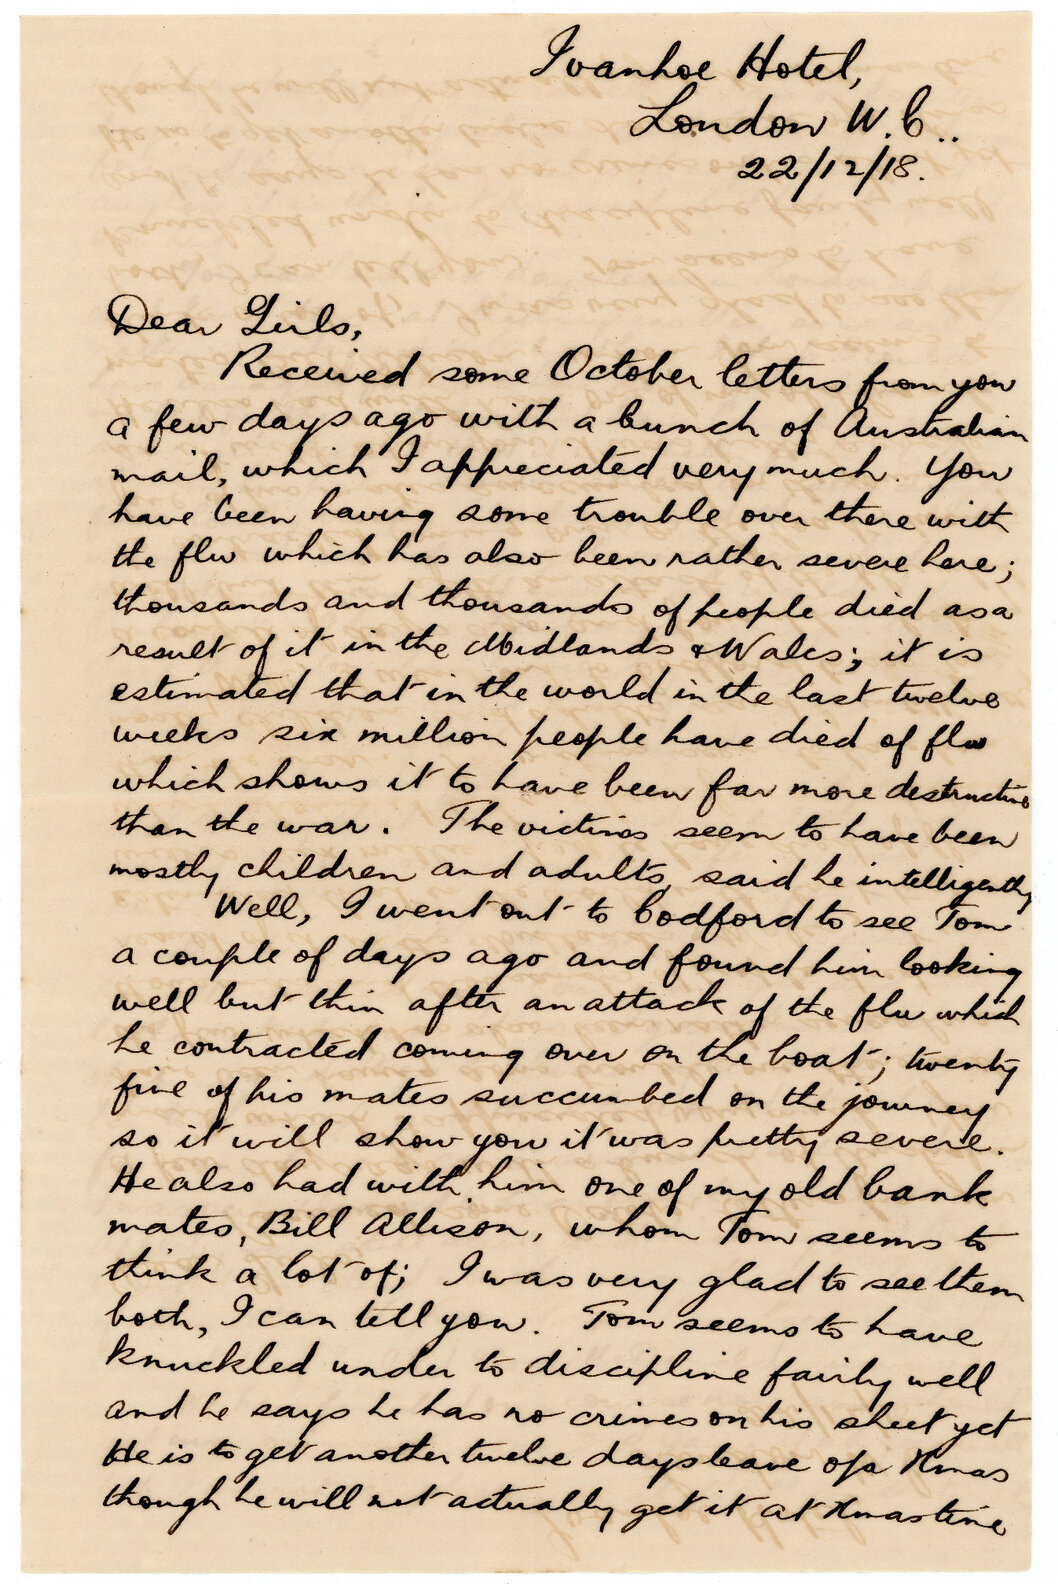 Ivanhoe Hotel,
London W.C..
22/12/18.
Dear Girls,
Received some October letters from you
a few days ago with a bunch of Australian
mail, which I appreciated very much. You
have been having some trouble over there with
the flu which has also been rather severe here;
thousands and thousands of people died as a
result of it in the Midlands & Wales; it is
estimated that in the world in the last twelve
weeks six million people have died of flu
which shows it to have been far more destructive
than the war. The victims seem to have been
mostly children and adults, said he intelligently
Well, I went out to Codford to see Tom
a couple of days ago and found him looking
well but thin after an attack of the flu which
he contracted coming over on the boat; twenty
five of his mates succumbed on the journey
so it will show you it was pretty severe.
He also had with him one of my old bank
mates, Bill Allison, whom Tom seems to
think a lot of; I was very glad to see them
both, I can tell you. Tom seems to have
knuckled under to discipline fairly well
and he says he has no crimes on his sheet yet
He is to get another twelve days leave o/a Xmas
though he will not actually get it at Xmas time